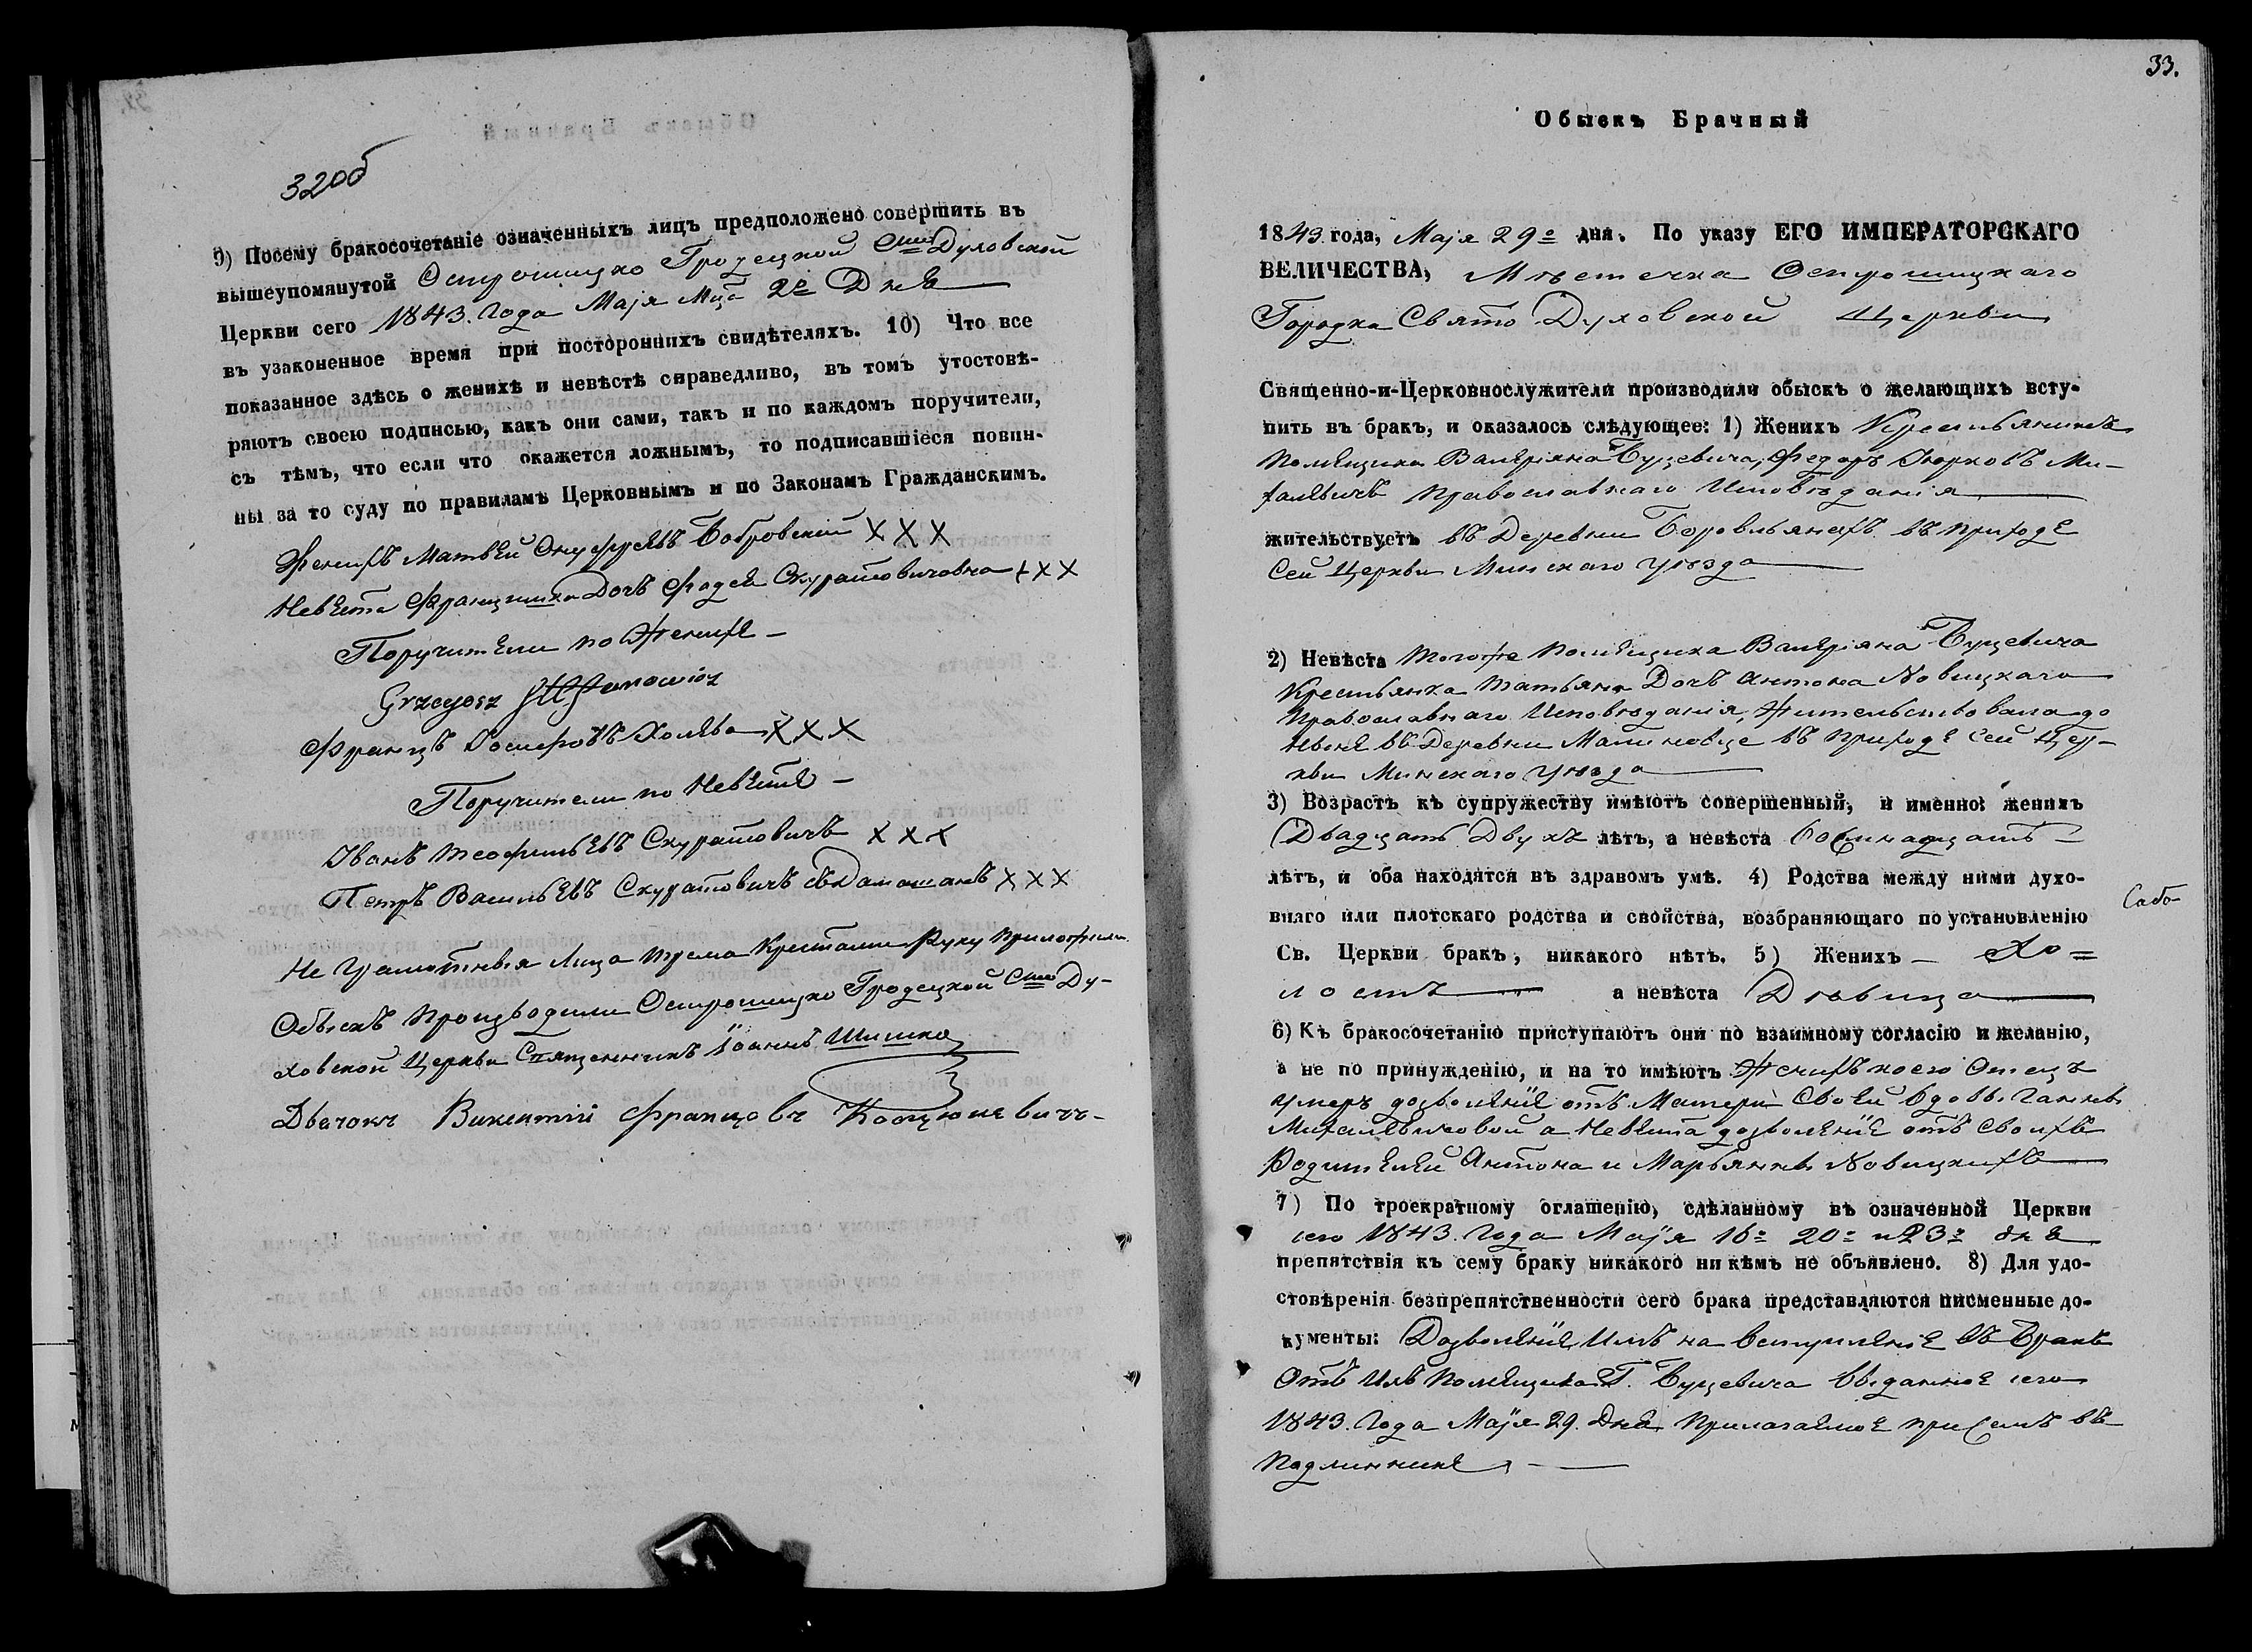 32 об
9) Посему бракосочетаніе означенныхъ лицъ предположено совершить въ
вышеупомянутой Острошицко Гродецкой Сто Духовской
Церкви сего 1843. Года Маія Мца 2º Дня
въ узаконенное время при постороннихъ свидѣтеляхъ. 10) Что все
показанное здѣсь о женихѣ и невѣстѣ справедливо, въ томъ утостовѣ-
ряютъ своею подписью, какъ они сами, такъ и по каждомъ поручители,
съ тѣмъ, что если что окажется ложнымъ, то подписавшіеся повин-
ны за то суду по правиламъ Церковнымъ и по Законамъ Гражданскимъ.
Женихъ Матвѣй Онуфріевъ Бобровскій XXX
Невѣста Францишка Дочъ Фадея Скуратовичовна XXX
Поручители по Женихе -
Grzegorz
Францъ Іосифовъ Холява XXX
Поручители по Невѣсте -
Иванъ Теофильевъ Скуратовичъ XXX
Петръ Васильевъ Скуратовичъ XXX
Не Грамотныя Лица трема Крестами Руку приложили
Обыскъ Производили Острошицко Гродецкой Сто Ду-
ховской Церкви Священникъ Іоаннъ Шишко
Дьячокъ Викентій Францовъ Коцюкевичъ-
33.
Обыскъ Брачный
1843 года, Маія 29º дня. По указу ЕГО ИМПЕРАТОРСКАГО
ВЕЛИЧЕСТВА, Мѣстечка Острошицкаго
Городка Свято Духовской Церкви
Священно-и-Церковнослужители производили обыскъ о желающихъ всту-
пить въ бракъ, и оказалось слѣдующее: 1) Женихъ Крестьянинъ
Помѣщика Валеріяна Буцевича, Федоръ Юрковъ Ми-
халевичъ Православнаго Исповѣданія
жительствуетъ въ Деревни Боровлянахъ въ приходе
Сей Церкви Минскаго уѣзда
2) Невѣста тогоже Помѣщика Валеріяна Буцевича
Крестьянка Татьяна Дочъ Антона Новицкаго
Православнаго Исповѣданія, Жительствовала до
ныне въ Деревни Малиновце въ приходе Сей Цер-
кви Минскаго уѣзда
3) Возрастъ къ супружеству имѣютъ совершенный, и именно: женихъ
Двадцать Двухъ лѣтъ, а невѣста Восимнадцать -
лѣтъ, и оба находятся въ здравомъ умѣ. 4) Родства между ними духо-
внаго или плотскаго родства и свойства, возбраняющаго по установленію
Св. Церкви бракъ, никакого нѣтъ. 5) Женихъ - Хо=
лостъ а невѣста Дѣвица
6) Къ бракосочетанію приступаютъ они по взаимному согласію и желанію,
а не по принужденію, и на то имѣютъ Женихъ коего Отецъ
умеръ дозволеніе отъ Матери Своей Вдовы Ганны
Михалевичовой а Невѣста дозволеніе отъ своихъ
Родителей Антона и Марьянны Новицкихъ
7) По троекратному оглашенію, сдѣланному въ означенной Церкви
сего 1843. Года Маія 16º 20º и 23º дня
препятствія къ сему браку никакого ни кѣмъ не объявлено. 8) Для удо-
стовѣренія безпрепятственности сего брака представляются писменные до-
кументы: Дозволеніе Имъ на вступленіе въ Бракъ
Отъ Ихъ Помѣщика Г. Буцевича Выданное сего
1843. Года Маія 29. Дня Прилагаемое при семъ въ
Подлиннике
Сабо-